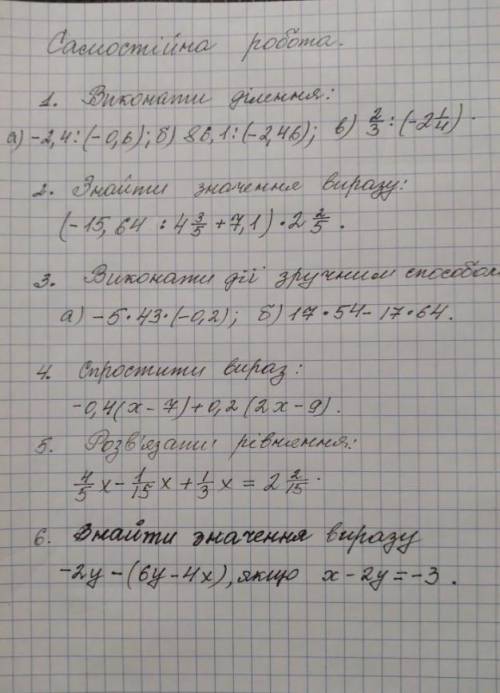 Самостійна робота.
1. Виконати ділення:
а) -2,4:(-0,6); б) 86,1:(-2,46); в) 2/3 : (-2 1/4).
2. Знайти значення виразу:
(-15,64 : 4 3/5 + 7,1) · 2 2/5.
3. Виконати дії зручним способом
а) -5·43·(-0,2); б) 17·54-17·64.
4. Спростити вираз:
-0,4(x-7)+0,2(2x-9).
5. Розв'язати рівняння:
4/5 x - 1/15 x + 1/3 x = 2 2/15.
6. Знайти значення виразу
-2y-(6y-4x), якщо x-2y=-3.